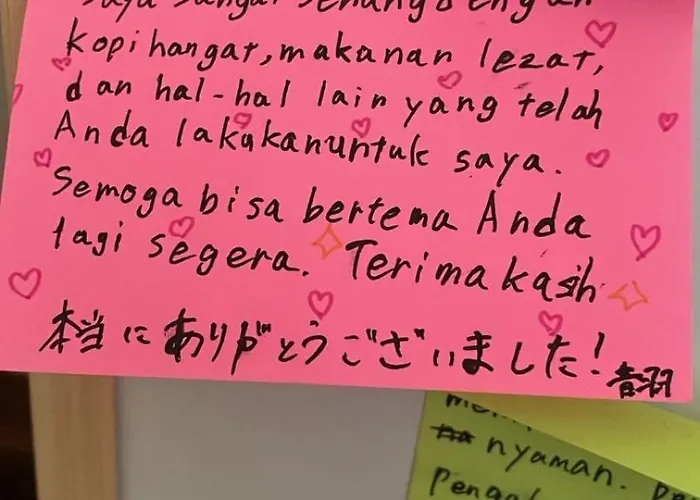 saya sangat senang dengan
kopi hangat, makanan lezat,
dan hal-hal lain yang telah
Anda lakukanuntuk saya.
Semoga bisa bertema Anda
lagi segera. Terima kasih
本当にありがとうございました!
音羽
nyaman.